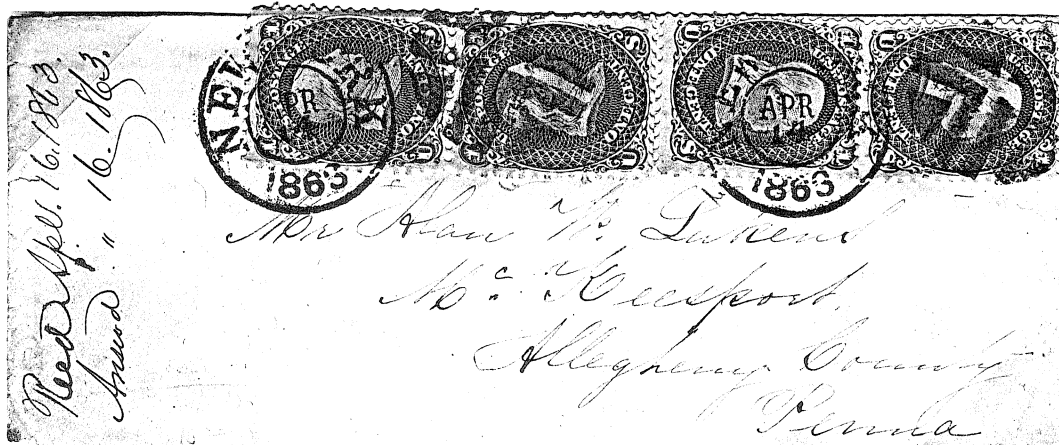 Recd Apl. 16. 1863.
Answd. " 16. 1863.
NEW
APR
1863
APR
1863
Mr Alan W. Lukens
Mc Keesport,
Allegheny County
Penna